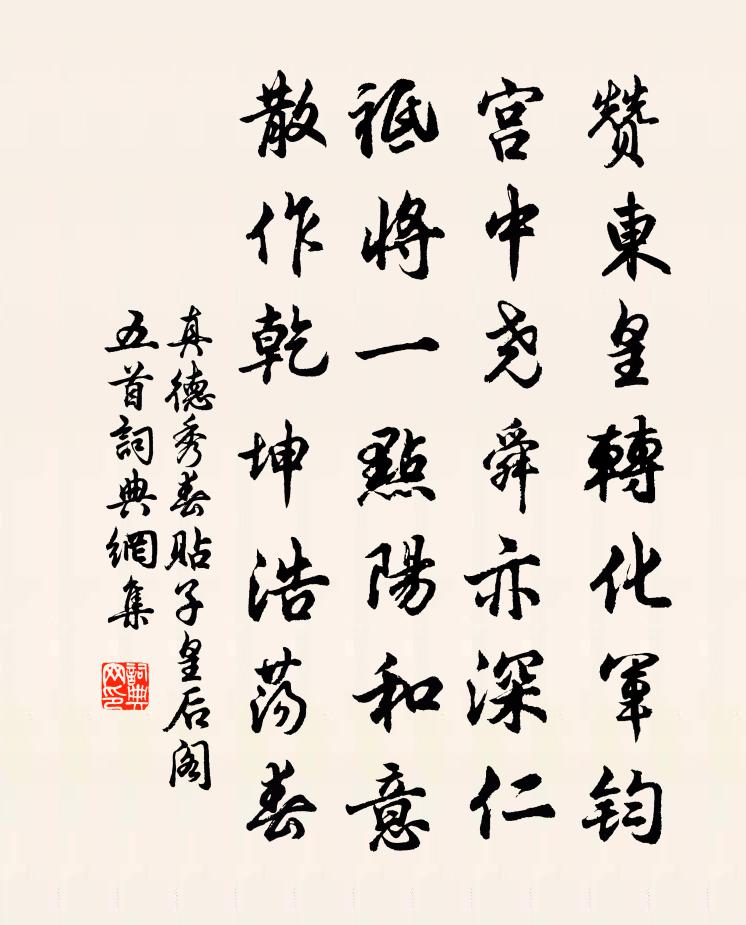 贊東皇轉化軍鈞
宮中尧舜亦深仁
祗將一點陽和意
散作乾坤浩荡春
真德秀春貼子皇后阁
五首詞典網集
詞典网印